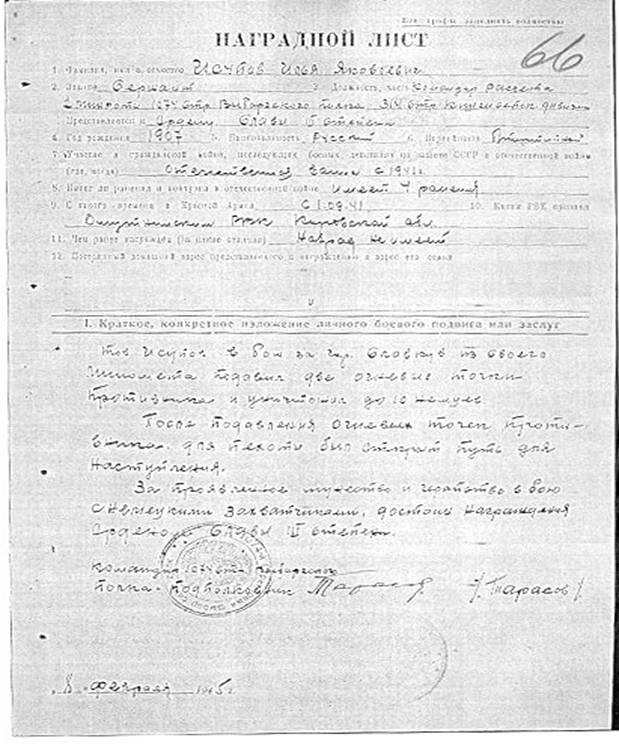 Все графы заполнять полностью
66
НАГРАДНОЙ ЛИСТ
1. Фамилия, имя и отчество Исупов Илья Яковлевич
2. Звание Сержант 3. Должность, часть Командир расчета
1074 стр. Выборгского полка 314 стр. дивизии
Представляется к Ордену Славы степени
4. Год рождения 1907 5. Национальность Русский 6. Партийность
7. Участие в гражданской войне, последующих боевых действиях по защите СССР и отечественной войне
(где, когда) Отечественная с 1941г.
8. Имеет ли ранения и контузии в отечественной войне имеет ранения
9. С какого времени в Красной Армии С 41 10. Каким РВК призван
РВК Кировской обл.
11. Чем ранее награжден (за какие отличия) Наград не имеет
12. Постоянный домашний адрес представляемого к награждению и адрес его семьи
I. Краткое, конкретное изложение личного боевого подвига или заслуг
Тов Исупов в бою за гор. из своего
подавил две огневые точки
Противника и уничтожил до 10 немцев
После подавления огневых точек проти-
вника для пехоты был открыт путь для
наступления.
За проявленное мужество и геройство в бою
с немецкими захватчиками, достоин награждения
Орденом Славы III степени.
командир 1074 стр. Выборгского
полка - подполковник Тарасов /Тарасов/
8 февраля 1945г.